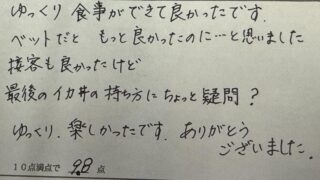 ゆっくり食事ができて良かったです.
ベットだと もっと良かったのに…と思いました
接客も良かったけど
最後のイカ丼の持ち方にちょっと疑問?
ゆっくり.楽しかったです.ありがとう
ございました.
10点満点で 9.8 点